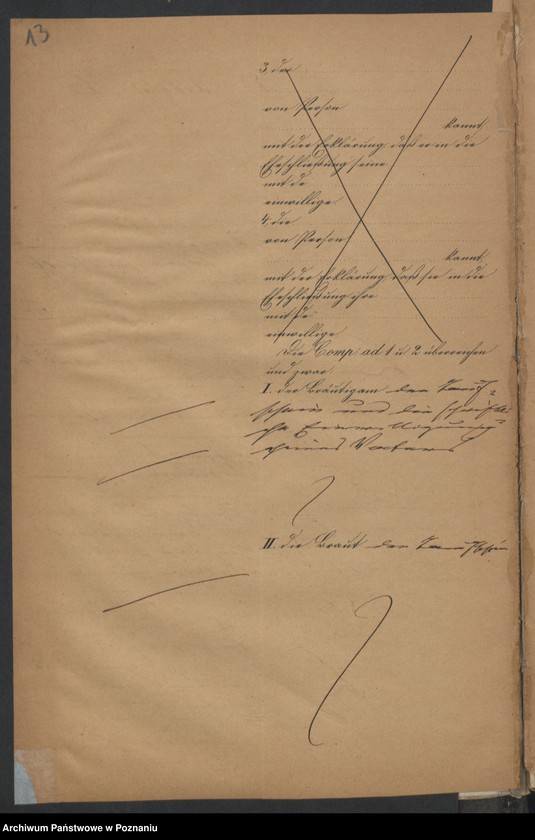 13
3, der
von Person
kannt,
mit der Erklärung, daß er in die
Eheschließung seine
mit de
einwillige
4, die
von Person
kannt,
mit der Erklärung, daß sie in die
Eheschließung ihre
mit de
einwillige
Die Comp. ad 1 u 2 überreichen
und zwar
I. der Bräutigam den Tauf-
schein und die schriftli-
che Einwilligung
seines Vaters
II. die Braut den Taufschein
Archiwum Państwowe w Poznaniu